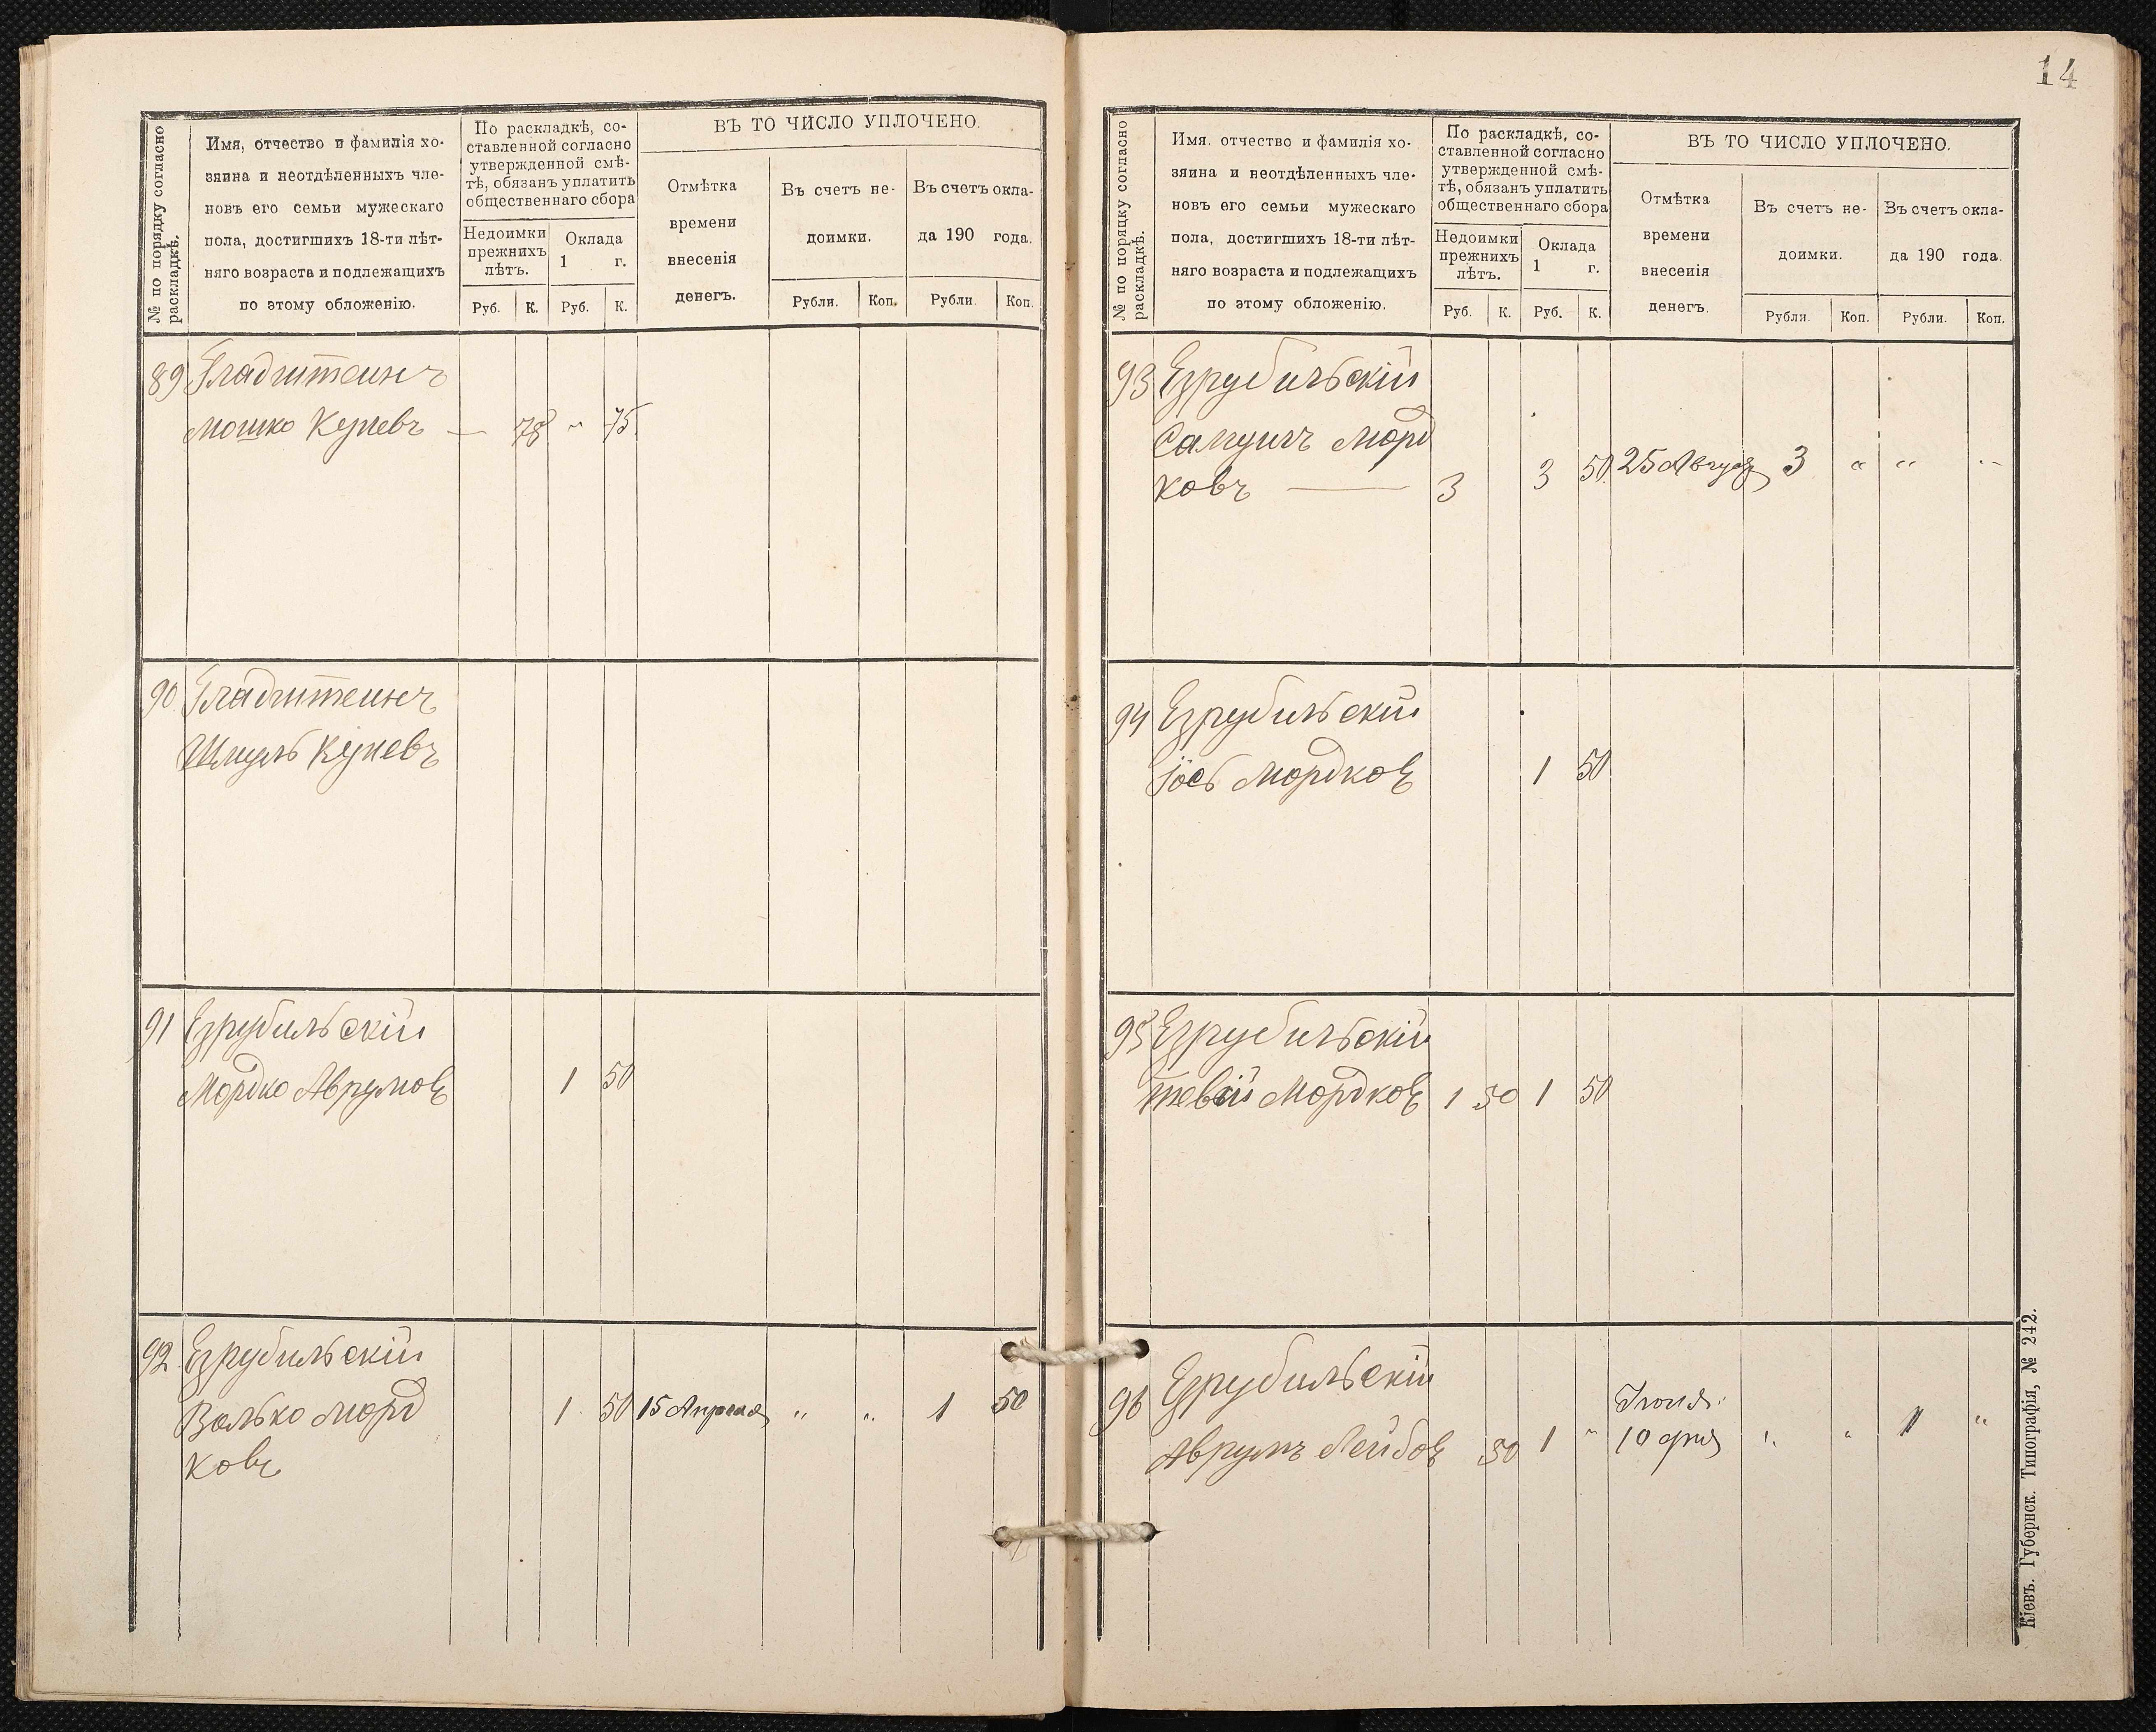 № по порядку согласно
раскладкѣ.
Имя, отчество и фамилія хо-
зяина и неотдѣленныхъ чле-
новъ его семьи мужескаго
пола, достигшихъ 18-ти лѣт-
няго возраста и подлежащихъ
по этому обложенію.
По раскладкѣ, со-
ставленной согласно
утвержденной смѣ-
тѣ, обязанъ уплатить
общественнаго сбора
Недоимки
прежнихъ
лѣтъ.
Оклада
1 г.
Руб. К. Руб. К.
ВЪ ТО ЧИСЛО УПЛОЧЕНО.
Отмѣтка
времени
внесенія
денегъ.
Въ счетъ не-
доимки.
Въ счетъ окла-
да 190 года.
Рубли. Коп. Рубли. Коп.
89 Гладштейнъ
Мошко Куневъ — 78 " 75.
90. Гладштейнъ
Шмуль Куневъ
91 Езрубильскій
Мордко Аврумовъ 1 50
92. Езрубильскій
Волько Морд 1 50 15 Апреля " " 1 50
ковъ
14
№ по порядку согласно
раскладкѣ.
Имя. отчество и фамилія хо-
зяина и неотдѣленныхъ чле-
новъ его семьи мужескаго
пола, достигшихъ 18-ти лѣт-
няго возраста и подлежащихъ
по этому обложенію.
По раскладкѣ, со-
ставленной согласно
утвержденной смѣ-
тѣ, обязанъ уплатить
общественнаго сбора
Недоимки
прежнихъ
лѣтъ.
Оклада
1 г.
Руб. К. Руб. К.
ВЪ ТО ЧИСЛО УПЛОЧЕНО.
Отмѣтка
времени
внесенія
денегъ.
Въ счетъ не-
доимки.
Въ счетъ окла-
да 190 года.
Рубли. Коп. Рубли. Коп.
93 Езрубильскій
Самуилъ Морд
ковъ — 3 3 50. 25 Августа 3 " " "
94 Езрубильскій
Іось Мордковъ 1 50
95 Езрубильскій
Тевій Мордковъ 1 50 1 50
96 Езрубильскій
Аврумъ Лейбовъ 50 1 " Іюня 10 дня " " 1 "
Кіевъ. Губернск. Типографія, № 242.